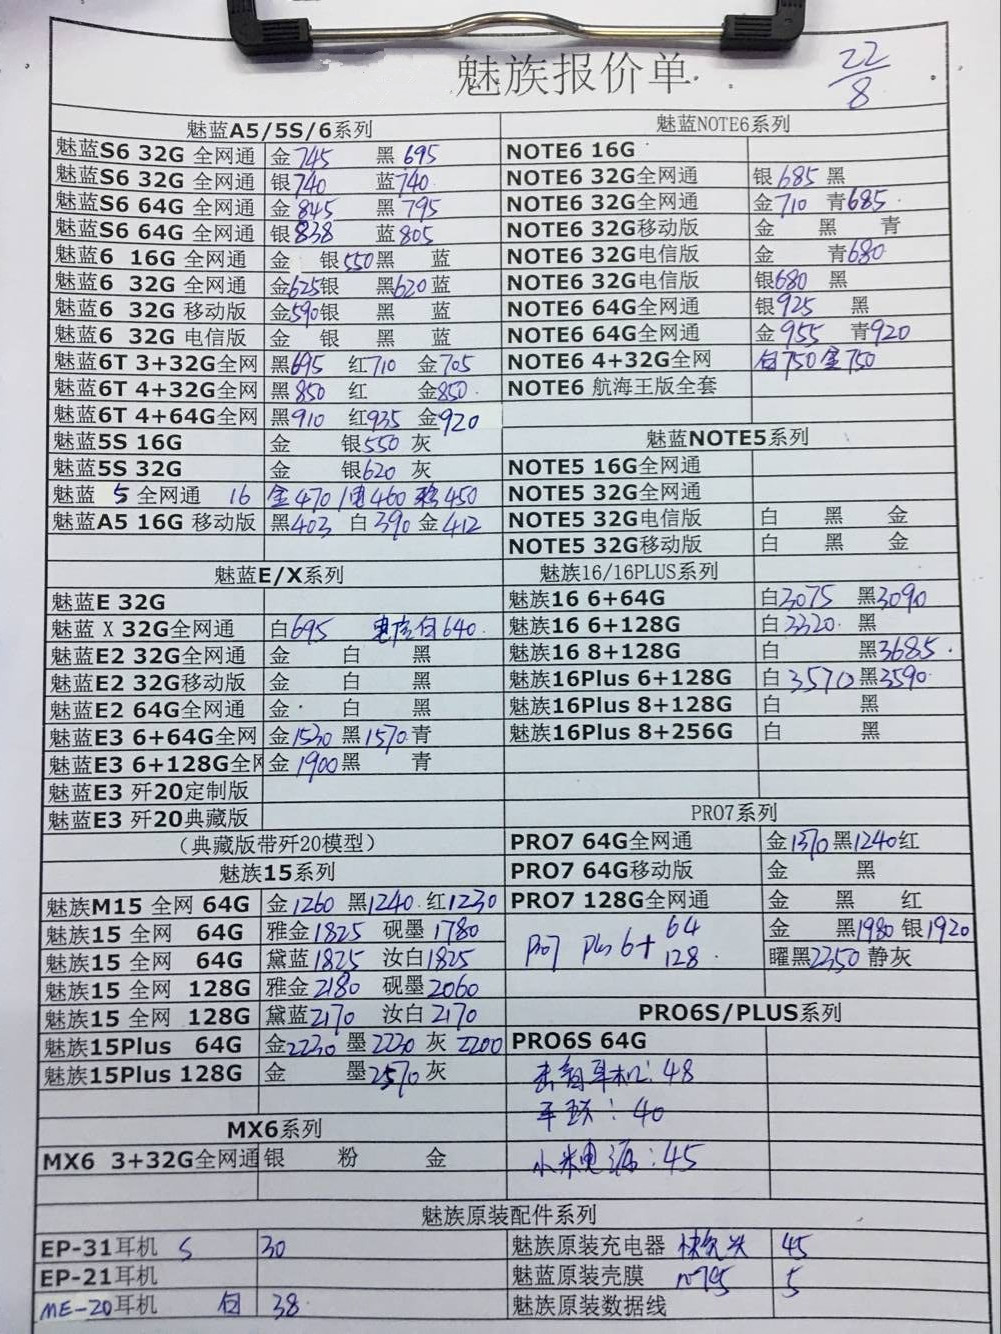 魅族报价单.
22/8
魅蓝A5/5S/6系列
魅蓝S6 32G 全网通 金745 黑695
魅蓝S6 32G 全网通 银740 蓝740
魅蓝S6 64G 全网通 金845 黑795
魅蓝S6 64G 全网通 银838 蓝805
魅蓝6 16G 全网通 金 银550 黑 蓝
魅蓝6 32G 全网通 金625 银 黑620 蓝
魅蓝6 32G 移动版 金590 银 黑 蓝
魅蓝6 32G 电信版 金 银 黑 蓝
魅蓝6T 3+32G全网 黑695 红710 金705
魅蓝6T 4+32G全网 黑850 红 金850
魅蓝6T 4+64G全网 黑910 红935 金920
魅蓝5S 16G 金 银550 灰
魅蓝5S 32G 金 银620 灰
魅蓝 5 全网通 16 金470 电460 移450
魅蓝A5 16G 移动版 黑403 白390 金412
魅蓝E/X系列
魅蓝E 32G
魅蓝 X 32G全网通 白695 电信白640
魅蓝E2 32G全网通 金 白 黑
魅蓝E2 32G移动版 金 白 黑
魅蓝E2 64G全网通 金 白 黑
魅蓝E3 6+64G全网 金1530 黑1570 青
魅蓝E3 6+128G全网 金1900 黑 青
魅蓝E3 歼20定制版
魅蓝E3 歼20典藏版
（典藏版带歼20模型）
魅族15系列
魅族M15 全网 64G 金1260 黑1240 红1230
魅族15 全网 64G 雅金1825 砚墨1780
魅族15 全网 64G 黛蓝1825 汝白1825
魅族15 全网 128G 雅金2180 砚墨2060
魅族15 全网 128G 黛蓝2170 汝白2170
魅族15Plus 64G 金2230 墨2230 灰2200
魅族15Plus 128G 金 墨2570 灰
MX6系列
MX6 3+32G全网通 银 粉 金
魅蓝NOTE6系列
NOTE6 16G
NOTE6 32G全网通 银685 黑
NOTE6 32G全网通 金710 青685
NOTE6 32G移动版 金 黑 青
NOTE6 32G电信版 金 青680
NOTE6 32G电信版 银680 黑
NOTE6 64G全网通 银925 黑
NOTE6 64G全网通 金955 青920
NOTE6 4+32G全网 白750 金750
NOTE6 航海王版全套
魅蓝NOTE5系列
NOTE5 16G全网通
NOTE5 32G全网通
NOTE5 32G电信版 白 黑 金
NOTE5 32G移动版 白 黑 金
魅族16/16PLUS系列
魅族16 6+64G 白3075 黑3090
魅族16 6+128G 白3320 黑
魅族16 8+128G 白 黑3685
魅族16Plus 6+128G 白3570 黑3590
魅族16Plus 8+128G 白 黑
魅族16Plus 8+256G 白 黑
PRO7系列
PRO7 64G全网通 金1370 黑1240 红
PRO7 64G移动版 金 黑
PRO7 128G全网通 金 黑 红
Pro7 plus 6+ 64 金 黑1980 银1920
128 曜黑2350 静灰
PRO6S/PLUS系列
PRO6S 64G
耳机：48
：40
小米电源：45
魅族原装配件系列
EP-31耳机 S 30
EP-21耳机
ME-20耳机 白 38
魅族原装充电器 快充头 45
魅蓝原装壳膜 5
魅族原装数据线